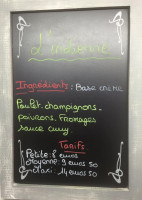 L'indienne
Ingrédients : Base crème
Poulet, champignons,
poivrons, Fromages
sauce curry.
Tarifs
Petite : 8 euros
Moyenne : 9 euros 50
Maxi : 14 euros 50